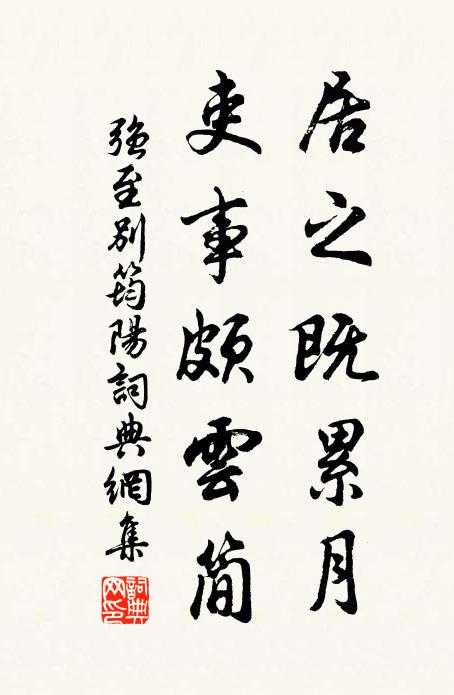 居之既累月
吏事頗雲简
強至別筠陽詞典網集
詞典網印